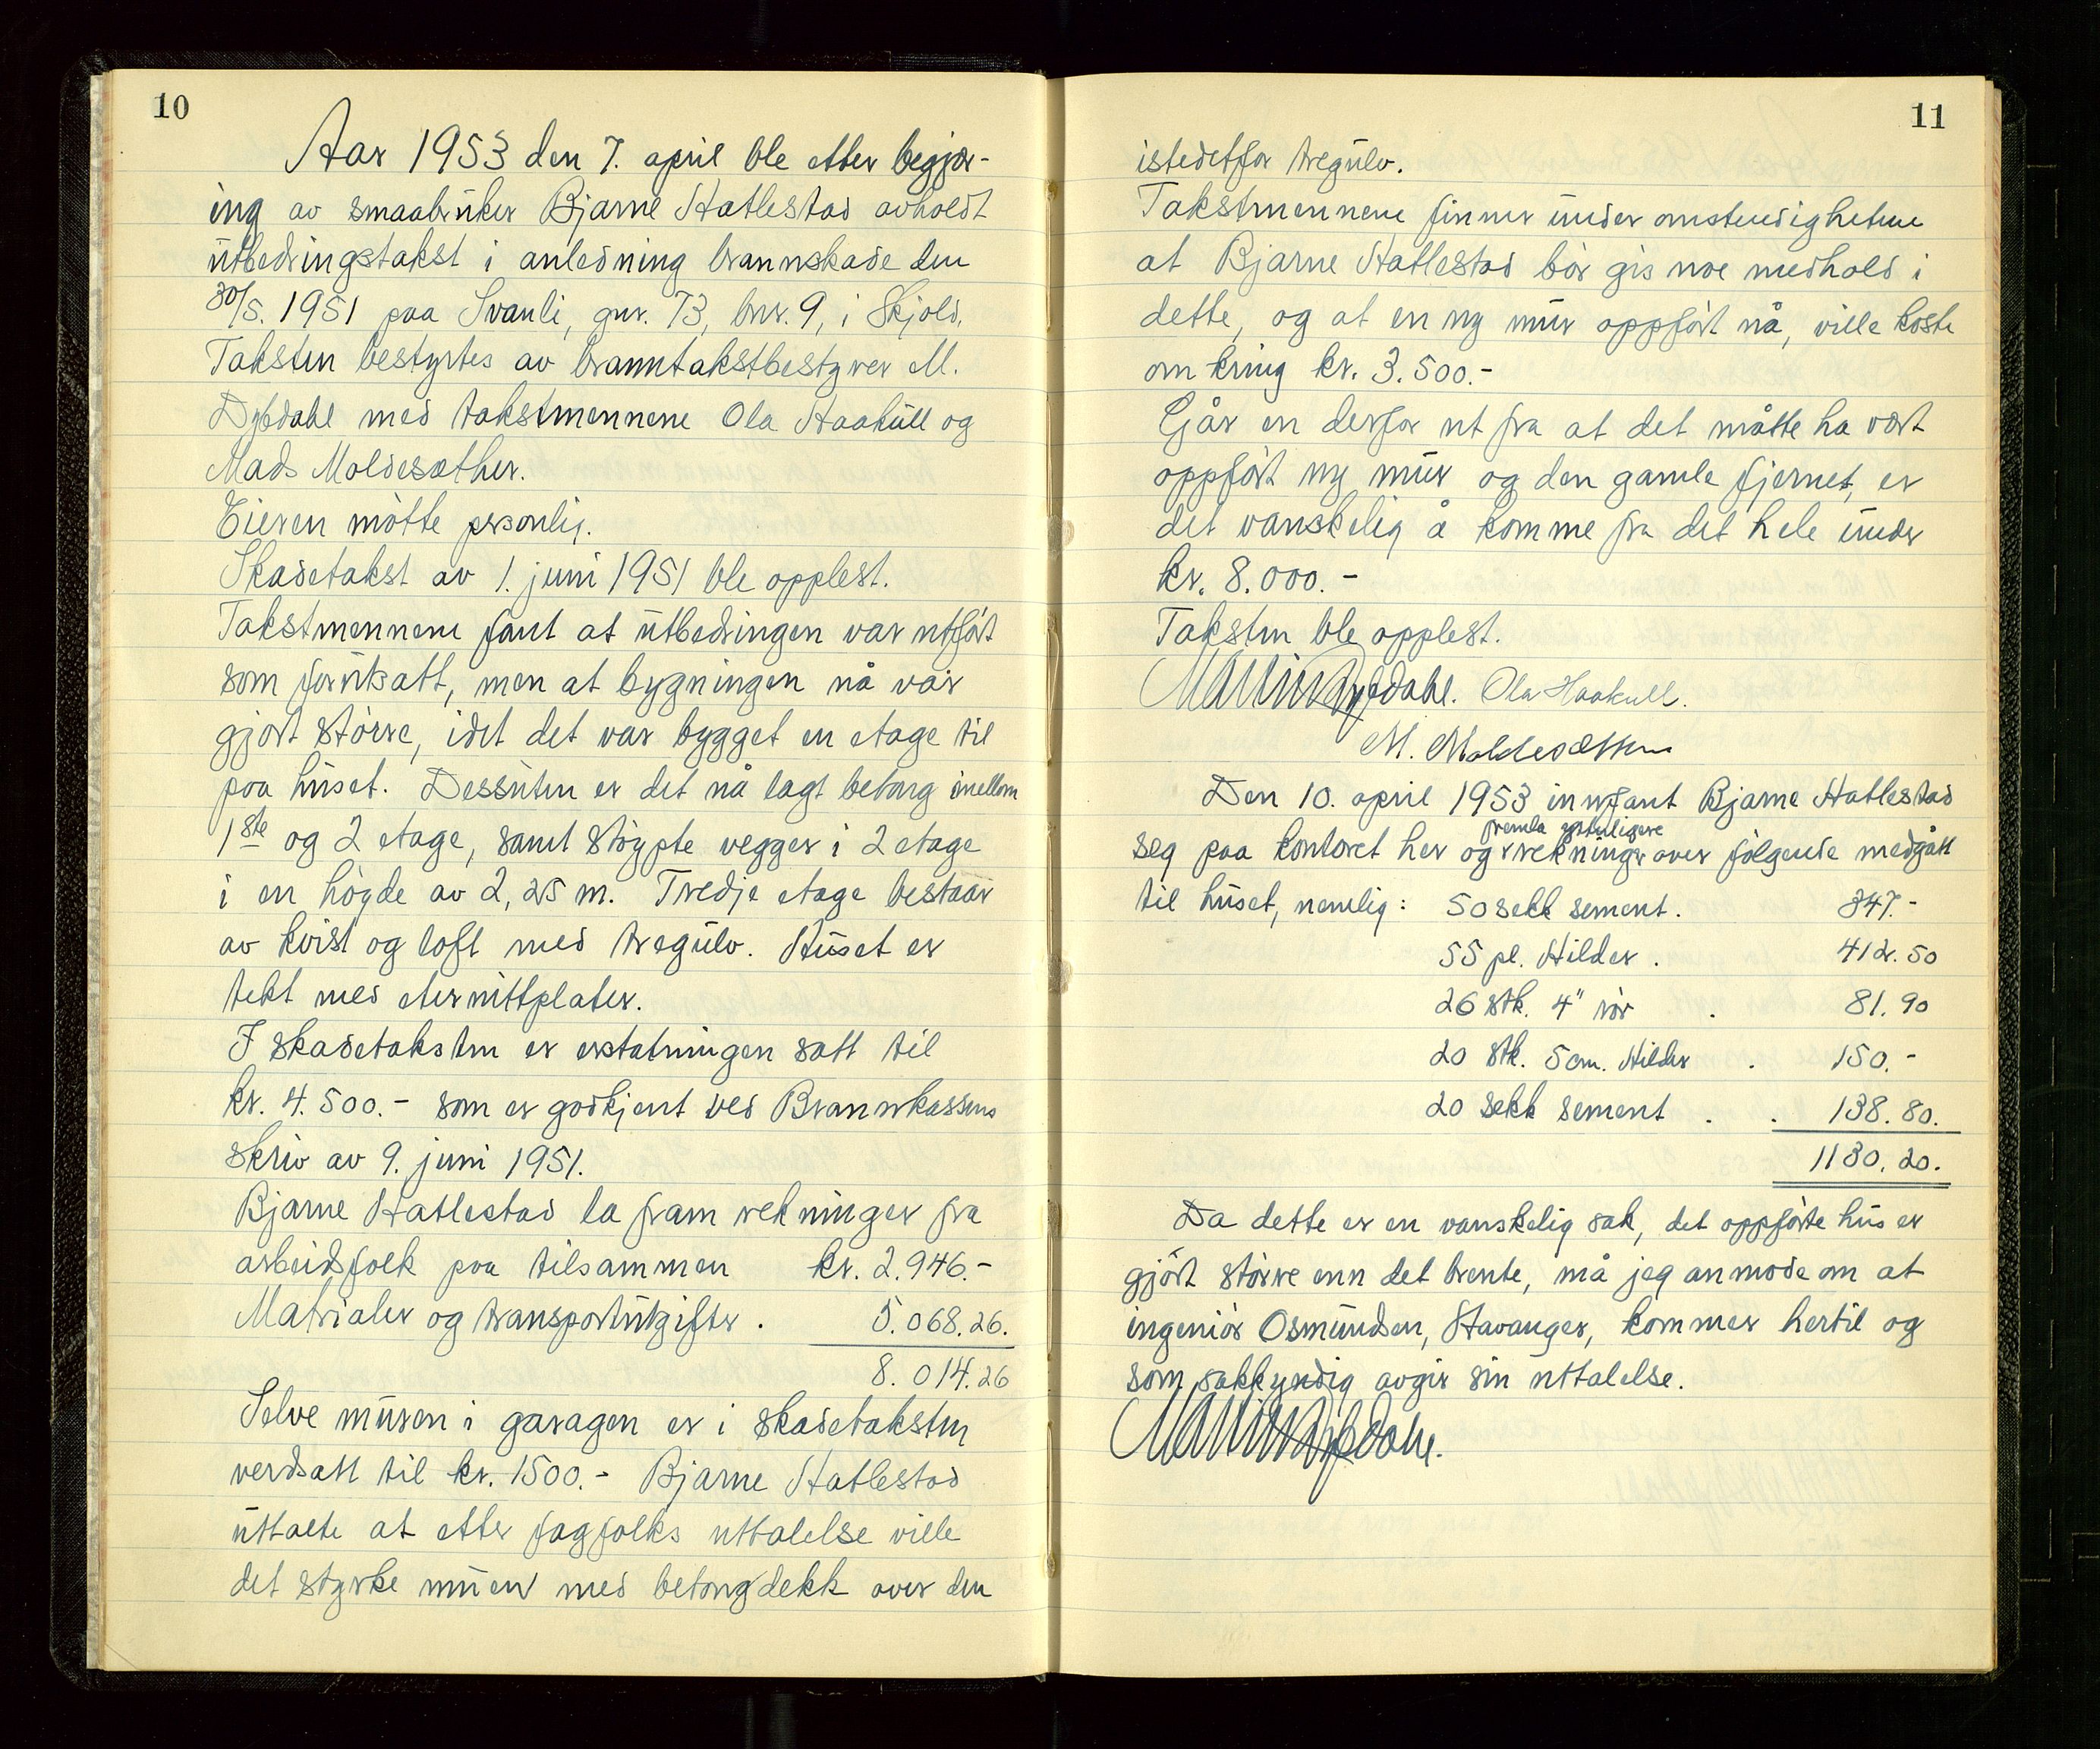 10
Aar 1953 den 7. april ble etter begjær-
ing av smaabruker Bjarne Hatlestad avholdt
utbedringstakst i anledning brannskade den
30/5. 1951 paa Svanli, gnr. 73, bnr. 9, i Skjold.
Taksten bestyrtes av branntakstbestyrer M.
Dybdahl med takstmennene Ola Haakull og
Mads Moldesæther.
Eieren møtte personlig.
Skadetakst av 1. juni 1951 ble opplest.
Takstmennene fant at utbedringen var utført
som forutsatt, men at bygningen nå var
gjort større, idet det var bygget en etage til
paa huset. Dessuten er det nå lagt betong mellom
1ste og 2 etage, samt støypte vegger i 2 etage
i en høgde av 2,25 m. Tredje etage bestaar
av kvist og loft med tregulv. Huset er
tekt med eternittplater.
I skadetaksten er erstatningen satt til
kr. 4.500.- som er godkjent ved Brannkassens
skriv av 9. juni 1951.
Bjarne Hatlestad la fram rekninger fra
arbeidsfolk paa tilsammen kr. 2.946.-
Matrialer og transportutgifter . 5.068.26.
8.014.26
Selve muren i garagen er i skadetaksten
verdsatt til kr. 1500.- Bjarne Hatlestad
uttalte at etter fagfolks uttalelse ville
det styrke muren med betongdekk over den
11
istedetfor tregulv.
Takstmennene finner under omstendighetene
at Bjarne Hatlestad bør gis noe medhold i
dette, og at en ny mur oppført nå, ville koste
omkring kr. 3.500.-
Går en derfor ut fra at det måtte ha vært
oppført ny mur og den gamle fjernet, er
det vanskelig å komme fra det hele under
kr. 8.000.-
Taksten ble opplest.
Martin Dybdahl. Ola Haakull.
M. Moldesæther
Den 10. april 1953 innfant Bjarne Hatlestad
fremla ytterligere
seg paa kontoret her og rekninger over følgende medgått
til huset, nemlig: 50 sekk sement. 347.-
55 pl. Hilder . 412.50
26 stk. 4" rør . 81.90
20 stk. 5cm. Hilder . 150.-
20 sekk sement . . 138.80.
1130.20.
Da dette er en vanskelig sak, det oppførte hus er
gjort større enn det brente, må jeg anmode om at
ingeniør Osmundsen, Stavanger, kommer hertil og
som sakkyndig avgir sin uttalelse.
Martin Dybdahl.